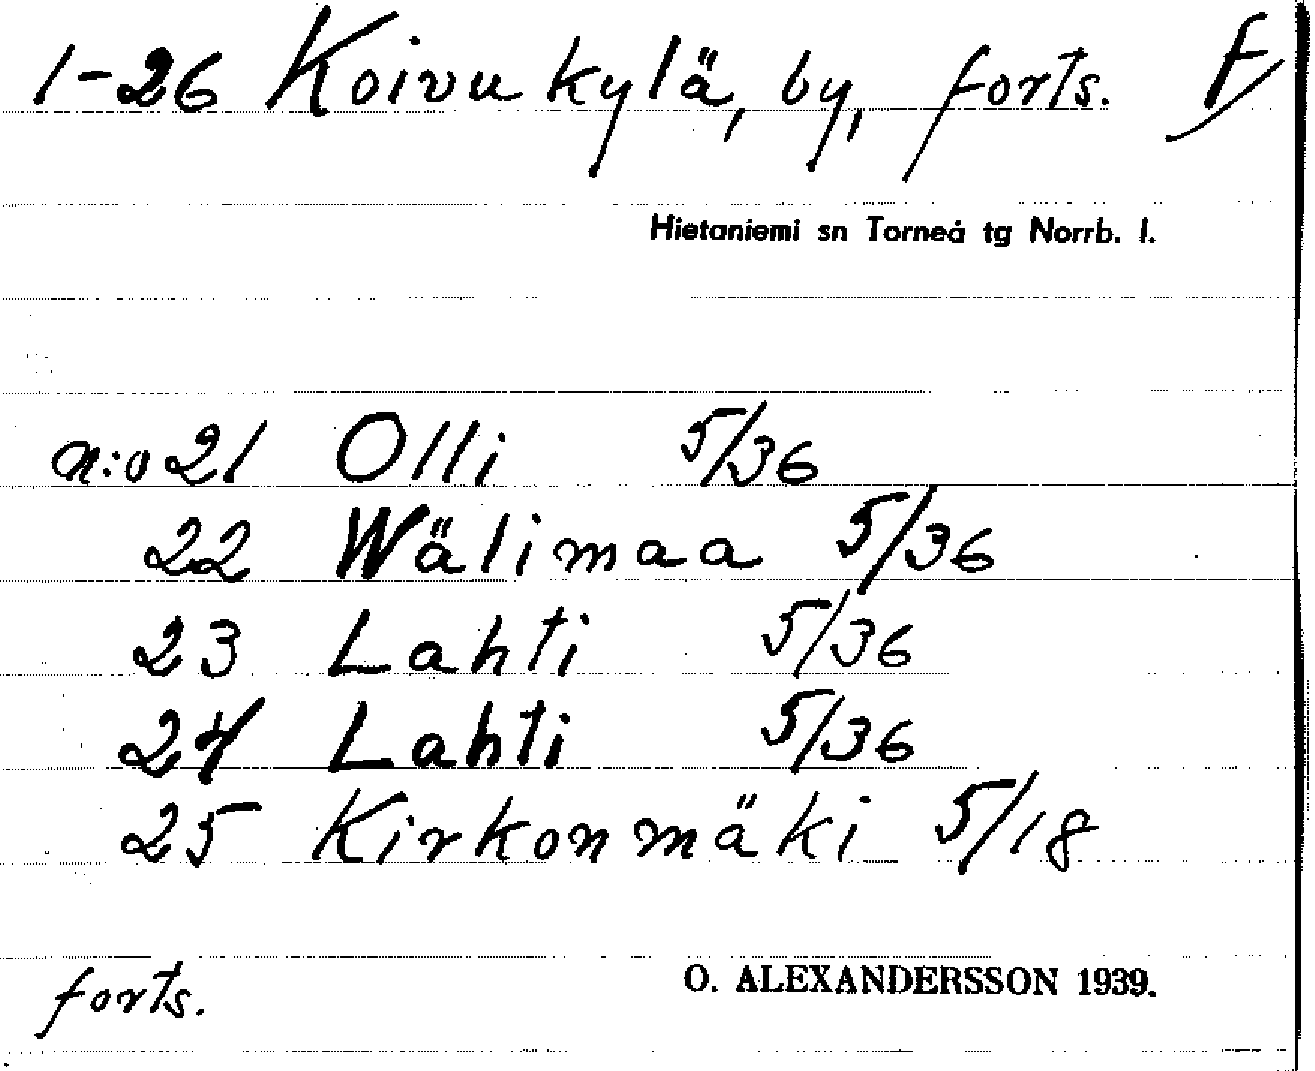 1-26 Koivukylä, by, forts. F
Hietaniemi sn Torneå tg Norrb. l.
n:o 21 Olli 5/36
22 Wälimaa 5/36
23 Lahti 5/36
24 Lahti 5/36
25 Kirkonmäki 5/18
forts. O. ALEXANDERSSON 1939.